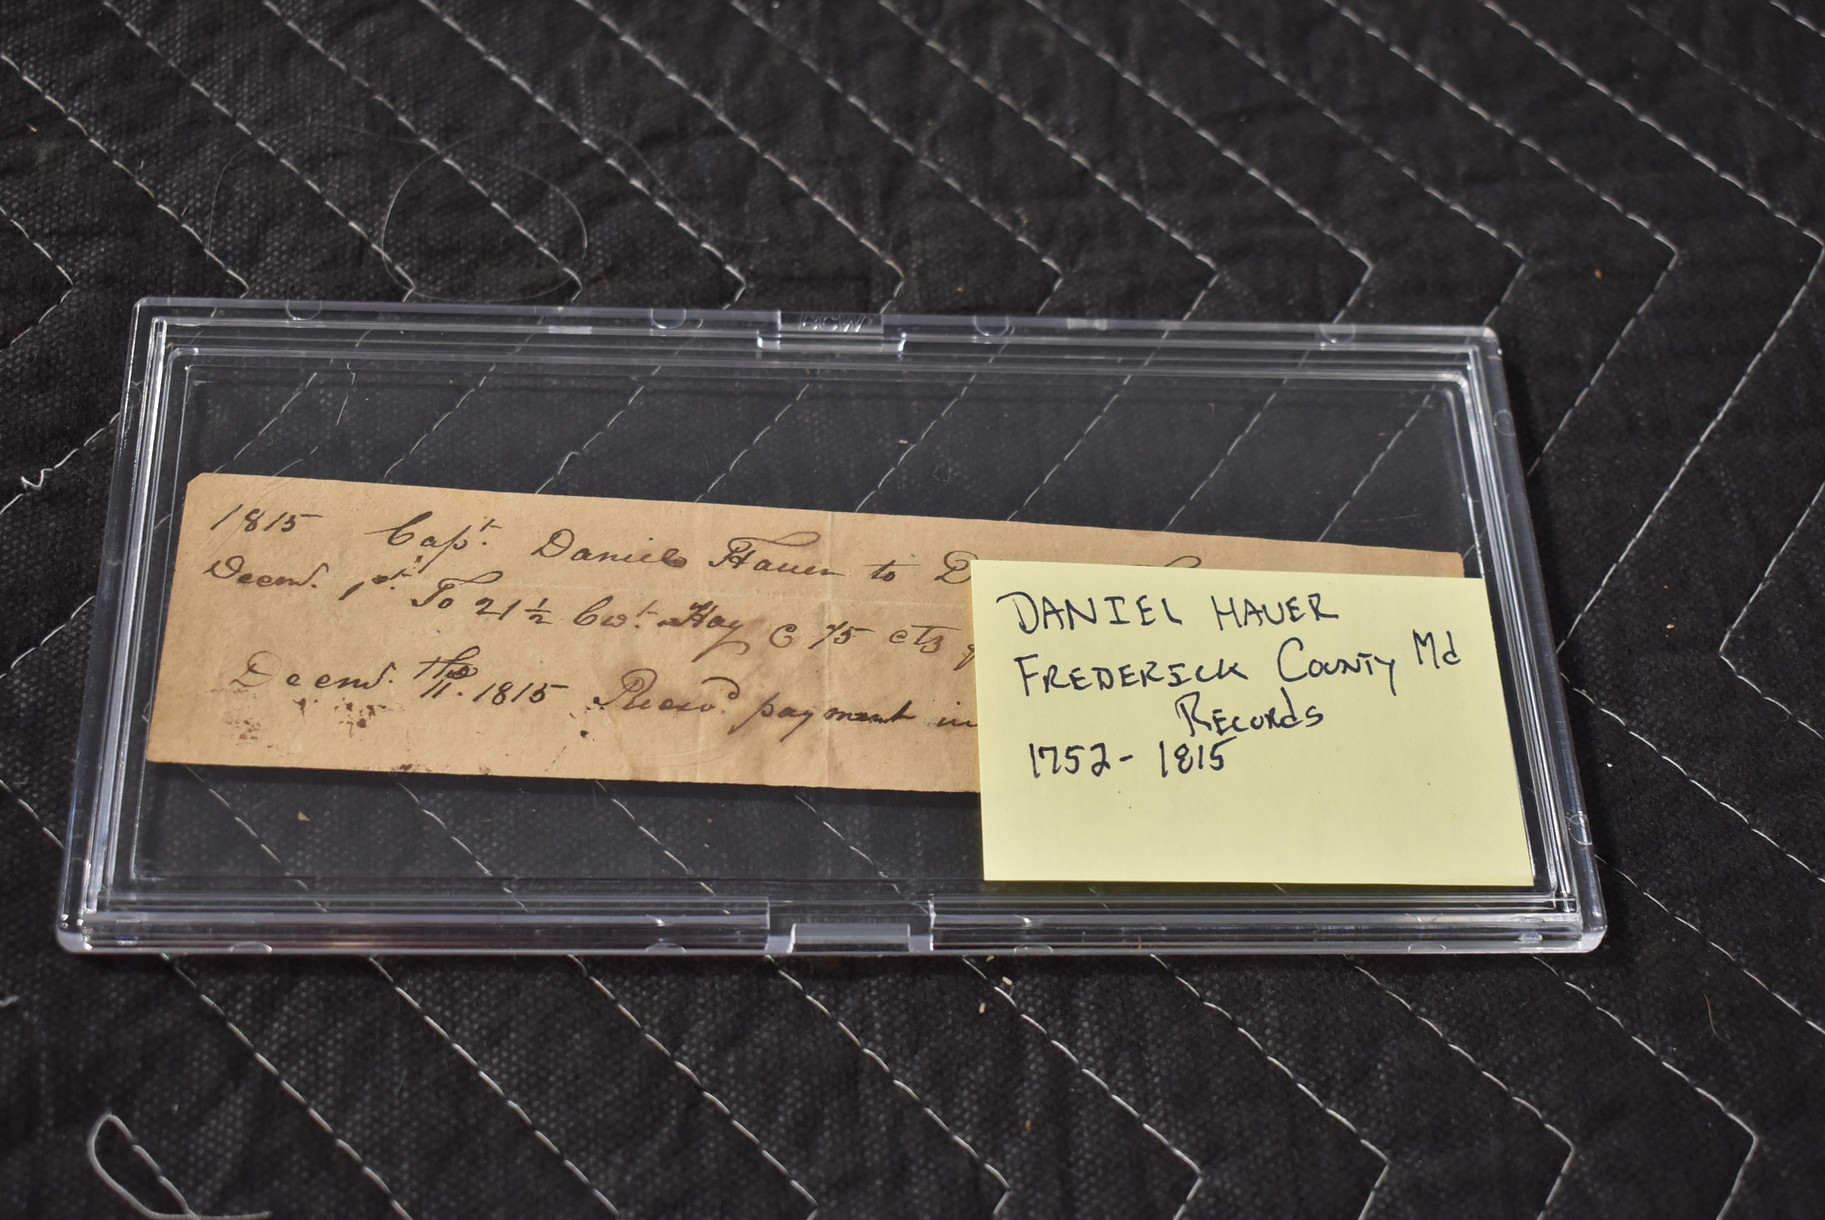 1815 Capt. Daniel Hauer to D
Decmr. 1st. To 21 1/2 Cwt. Hay @ 75 cts
Decmr. 11th. 1815 Recevd. payment in
DANIEL HAUER
FREDERICK COUNTY Md
RECORDS
1752- 1815